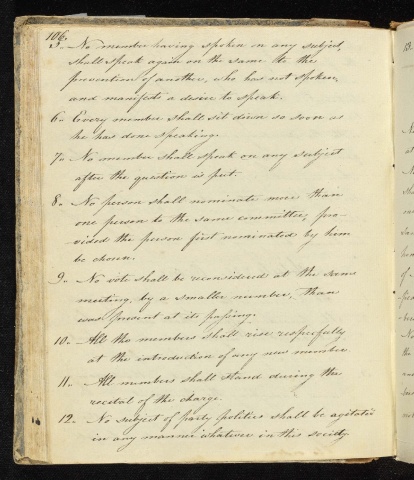 106.
5. No member having spoken on any subject,
shall speak again on the same to the
prevention of another, who has not spoken,
and manifests a desire to speak.
6. Every member shall sit down so soon as
he has done speaking.
7. No member shall speak on any subject
after the question is put.
8. No person shall nominate more than
one person to the same committee, pro-
-vided the person first nominated by him
be chosen.
9. No vote shall be reconsidered at the same
meeting, by a smaller number, than
was present at its passing.
10. All the members shall rise respectfully
at the introduction of any new member
11. All members shall stand during the
recital of the charge.
12. No subject of party politics shall be agitated
in any manner whatever in this society.